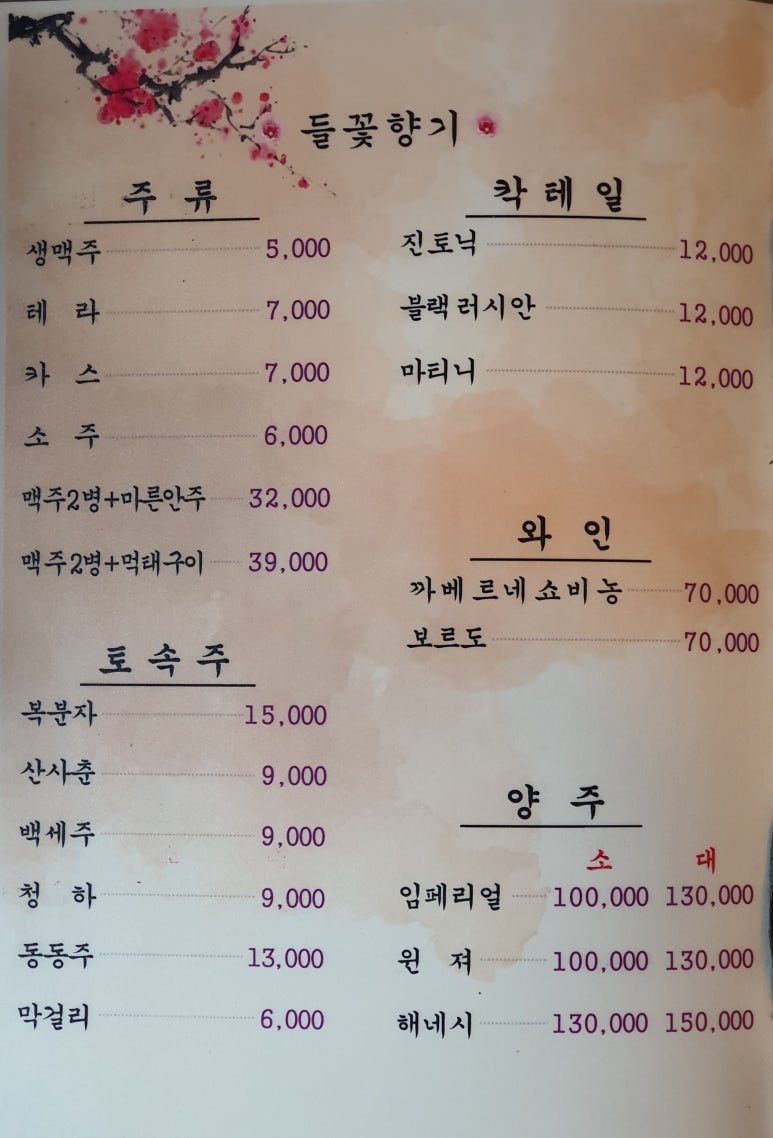 들꽃향기
주 류
생맥주 5,000
테 라 7,000
카 스 7,000
소 주 6,000
맥주2병+마른안주 32,000
맥주2병+먹태구이 39,000
토 속 주
복분자 15,000
산사춘 9,000
백세주 9,000
청 하 9,000
동동주 13,000
막걸리 6,000
칵 테 일
진토닉 12,000
블랙러시안 12,000
마티니 12,000
와 인
까베르네쇼비뇽 70,000
보르도 70,000
양 주
소 대
임페리얼 100,000 130,000
윈 져 100,000 130,000
해네시 130,000 150,000